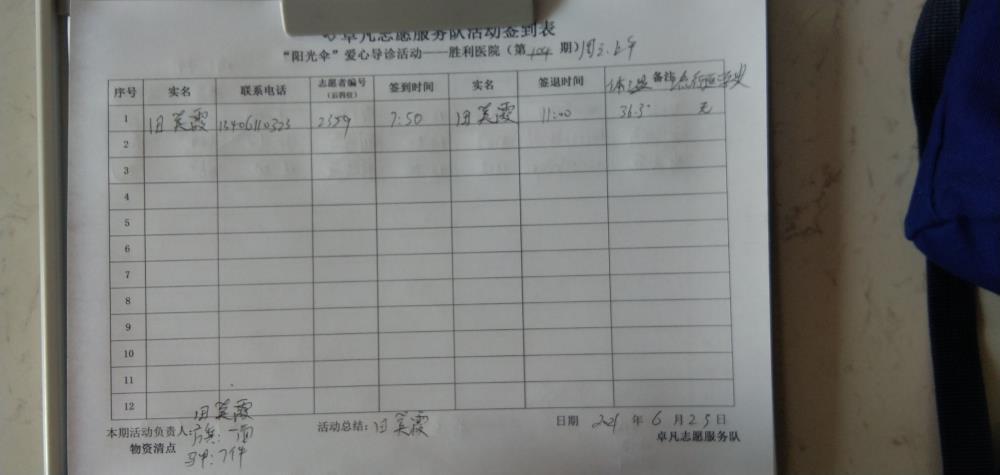 卓凡志愿服务队活动签到表
“阳光伞”爱心导诊活动——胜利医院（第 期）
序号 实名 联系电话 志愿者编号（后四位） 签到时间 实名 签退时间 体温 备注
1 田美霞 13406110323 2359 7:50 田美霞 11:00 36.5° 无
2
3
4
5
6
7
8
9
10
11
12
本期活动负责人: 田美霞 活动总结: 田美霞 日期 2021 年 6 月 25 日
物资清点 一面 7件 卓凡志愿服务队